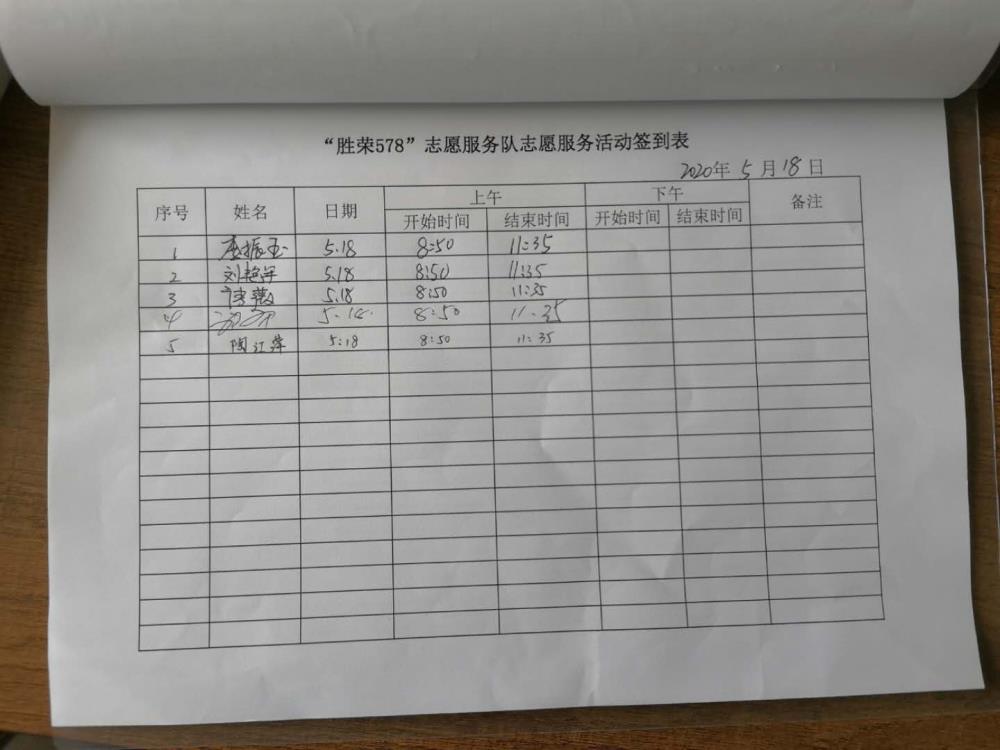 “胜荣578”志愿服务队志愿服务活动签到表
2020年 5 月 18 日
序号 姓名 日期 上午 下午 备注
开始时间 结束时间 开始时间 结束时间
1 振玉 5.18 8:50 11:35
2 刘艳军 5.18 8:50 11:35
3 5.18 8:50 11:35
4 5.18. 8:50 11.35
5 陶江萍 5:18 8:50 11:35